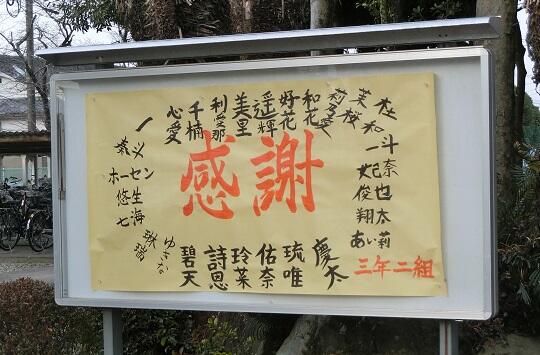 感謝
心愛
千楠
利愛那
美里
遥輝
好花
和花
莉桜
美桜
和
一
斗
奈
也
太
莉
妃
俊
翔
あい
ホーセン
悠生
七海
ゆきな
碧天
詩恩
玲菜
佑奈
琉唯
慶太
三年二組